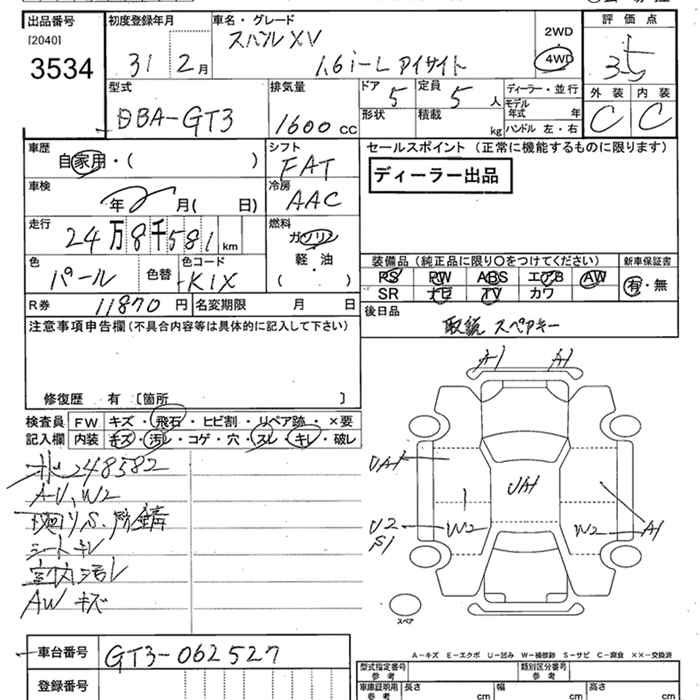 出品番号 初度登録年月 車名・グレード 評価点
[2040] スバル XV 2WD
3534 31 2月 1.6i-L アイサイト 4WD 3.5
型式 排気量 ドア 定員 ディーラー・並行 外装 内装
DBA-GT3 1600cc 5 5人 モデル年式 年 C C
形状 積載 kg ハンドル 左・右
車歴 シフト セールスポイント (正常に機能するものに限ります)
自家用・( ) FAT ディーラー出品
車検 冷房
年 2 月( 日) AAC
走行 燃料
24万8千581km ガソリン
軽・油
( )
色 色替 色コード 装備品(純正品に限り○をつけてください) 新車保証書
パール KIX PS PW ABS エアB AW 有・無
SR ナビ TV カワ
R券 11870円 名変期限 月 日 後日品
注意事項申告欄(不具合内容等は具体的に記入して下さい) 取説 スペアキー
修復歴 有 [箇所 ]
A1 A1
検査員 FW キズ・飛石・ヒビ割・リペア跡・×要
記入欄 内装 キズ・汚レ・コゲ・穴・スレ・キレ・破レ
UA1 UA1
248582
A-U、W2
U2 W2 W2 A1
S1
シートキレ
室内汚レ
AWキズ
スペア
車台番号 GT3-062527
A-キズ E-エクボ U-凹み W-補修跡 S-サビ C-腐食 ××-交換済
登録番号 型式指定番号 参考 類別区分番号 参考
車庫証明用 参考 長さ cm 幅 cm 高さ cm